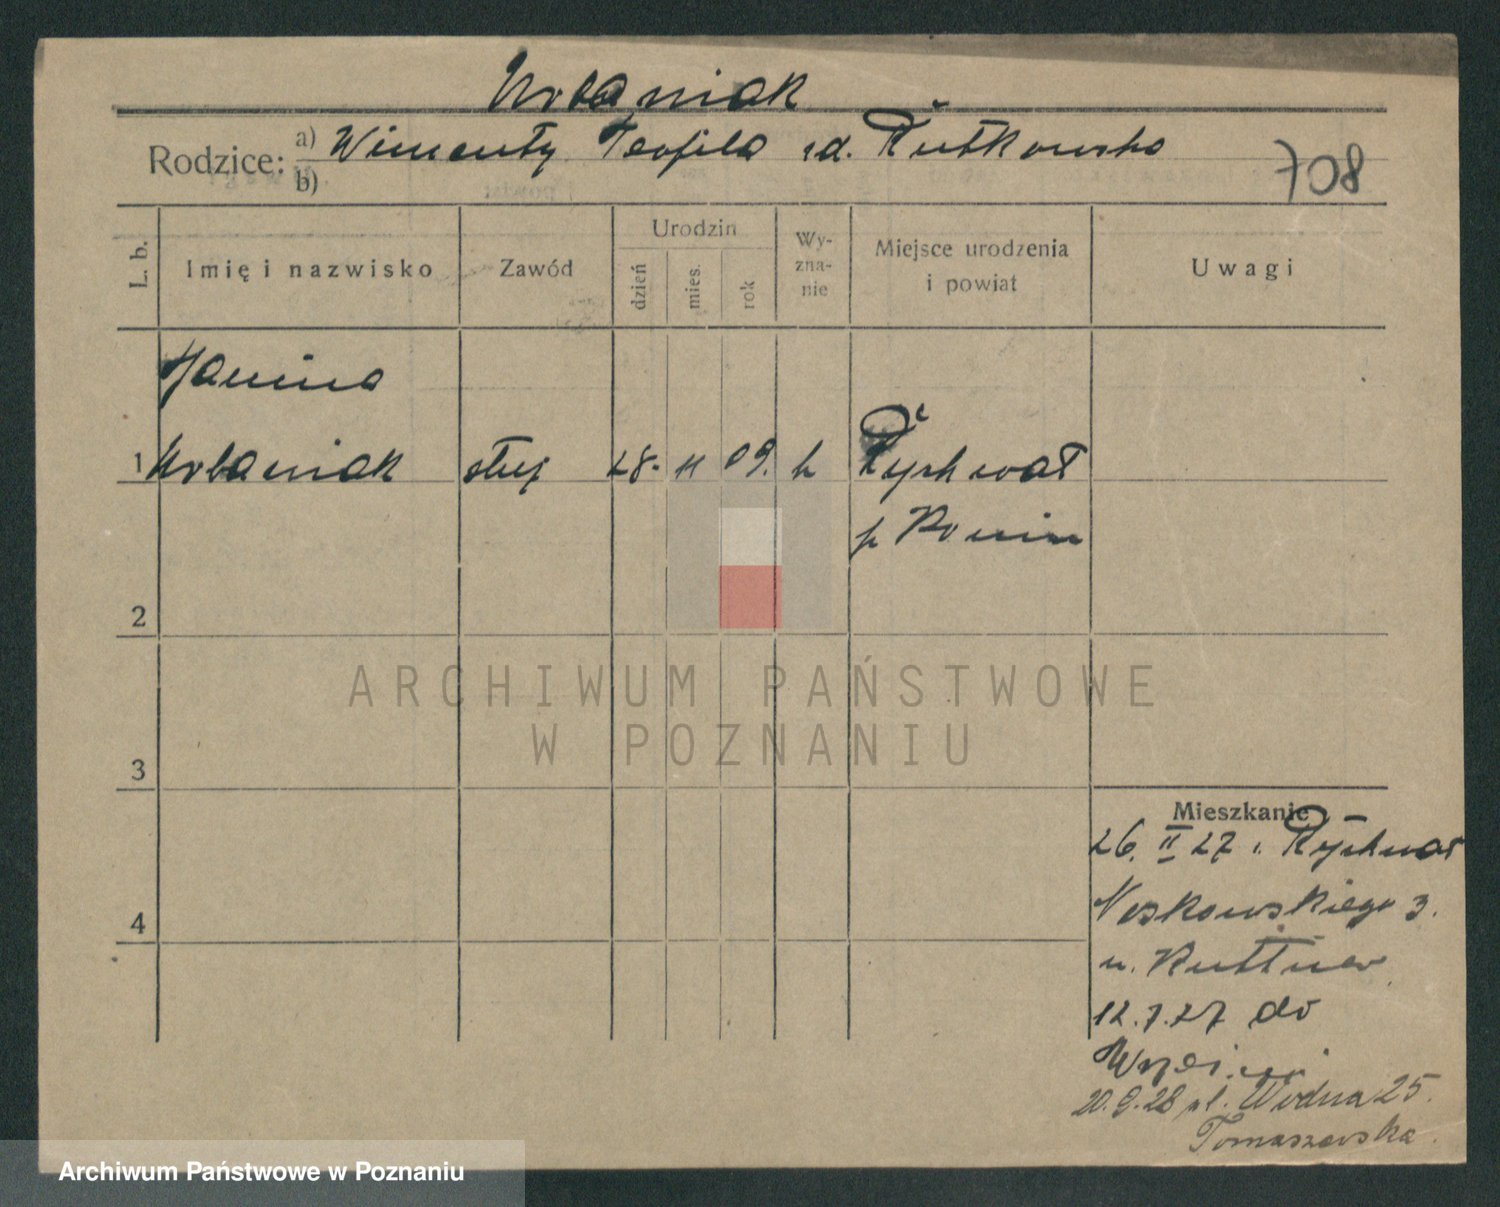 Urbaniak
Rodzice: a) Wincenty Teofila zd. Rutkowska
b)
708
L. b.
Imię i nazwisko
Zawód
Urodzin
dzień
mies.
rok
Wy-
zna-
nie
Miejsce urodzenia
i powiat
Uwagi
Janina
1 Urbaniak służ 28. 11 09. k Rychwał
p Konin
2
3
4
ARCHIWUM PAŃSTWOWE
W POZNANIU
Mieszkanie
26. II 27 z. Rychwał
Noskowskiego 3.
u. Kuttner
12.7.27 do
20.9.28 ul. Wodna 25.
Tomaszewska.
Archiwum Państwowe w Poznaniu